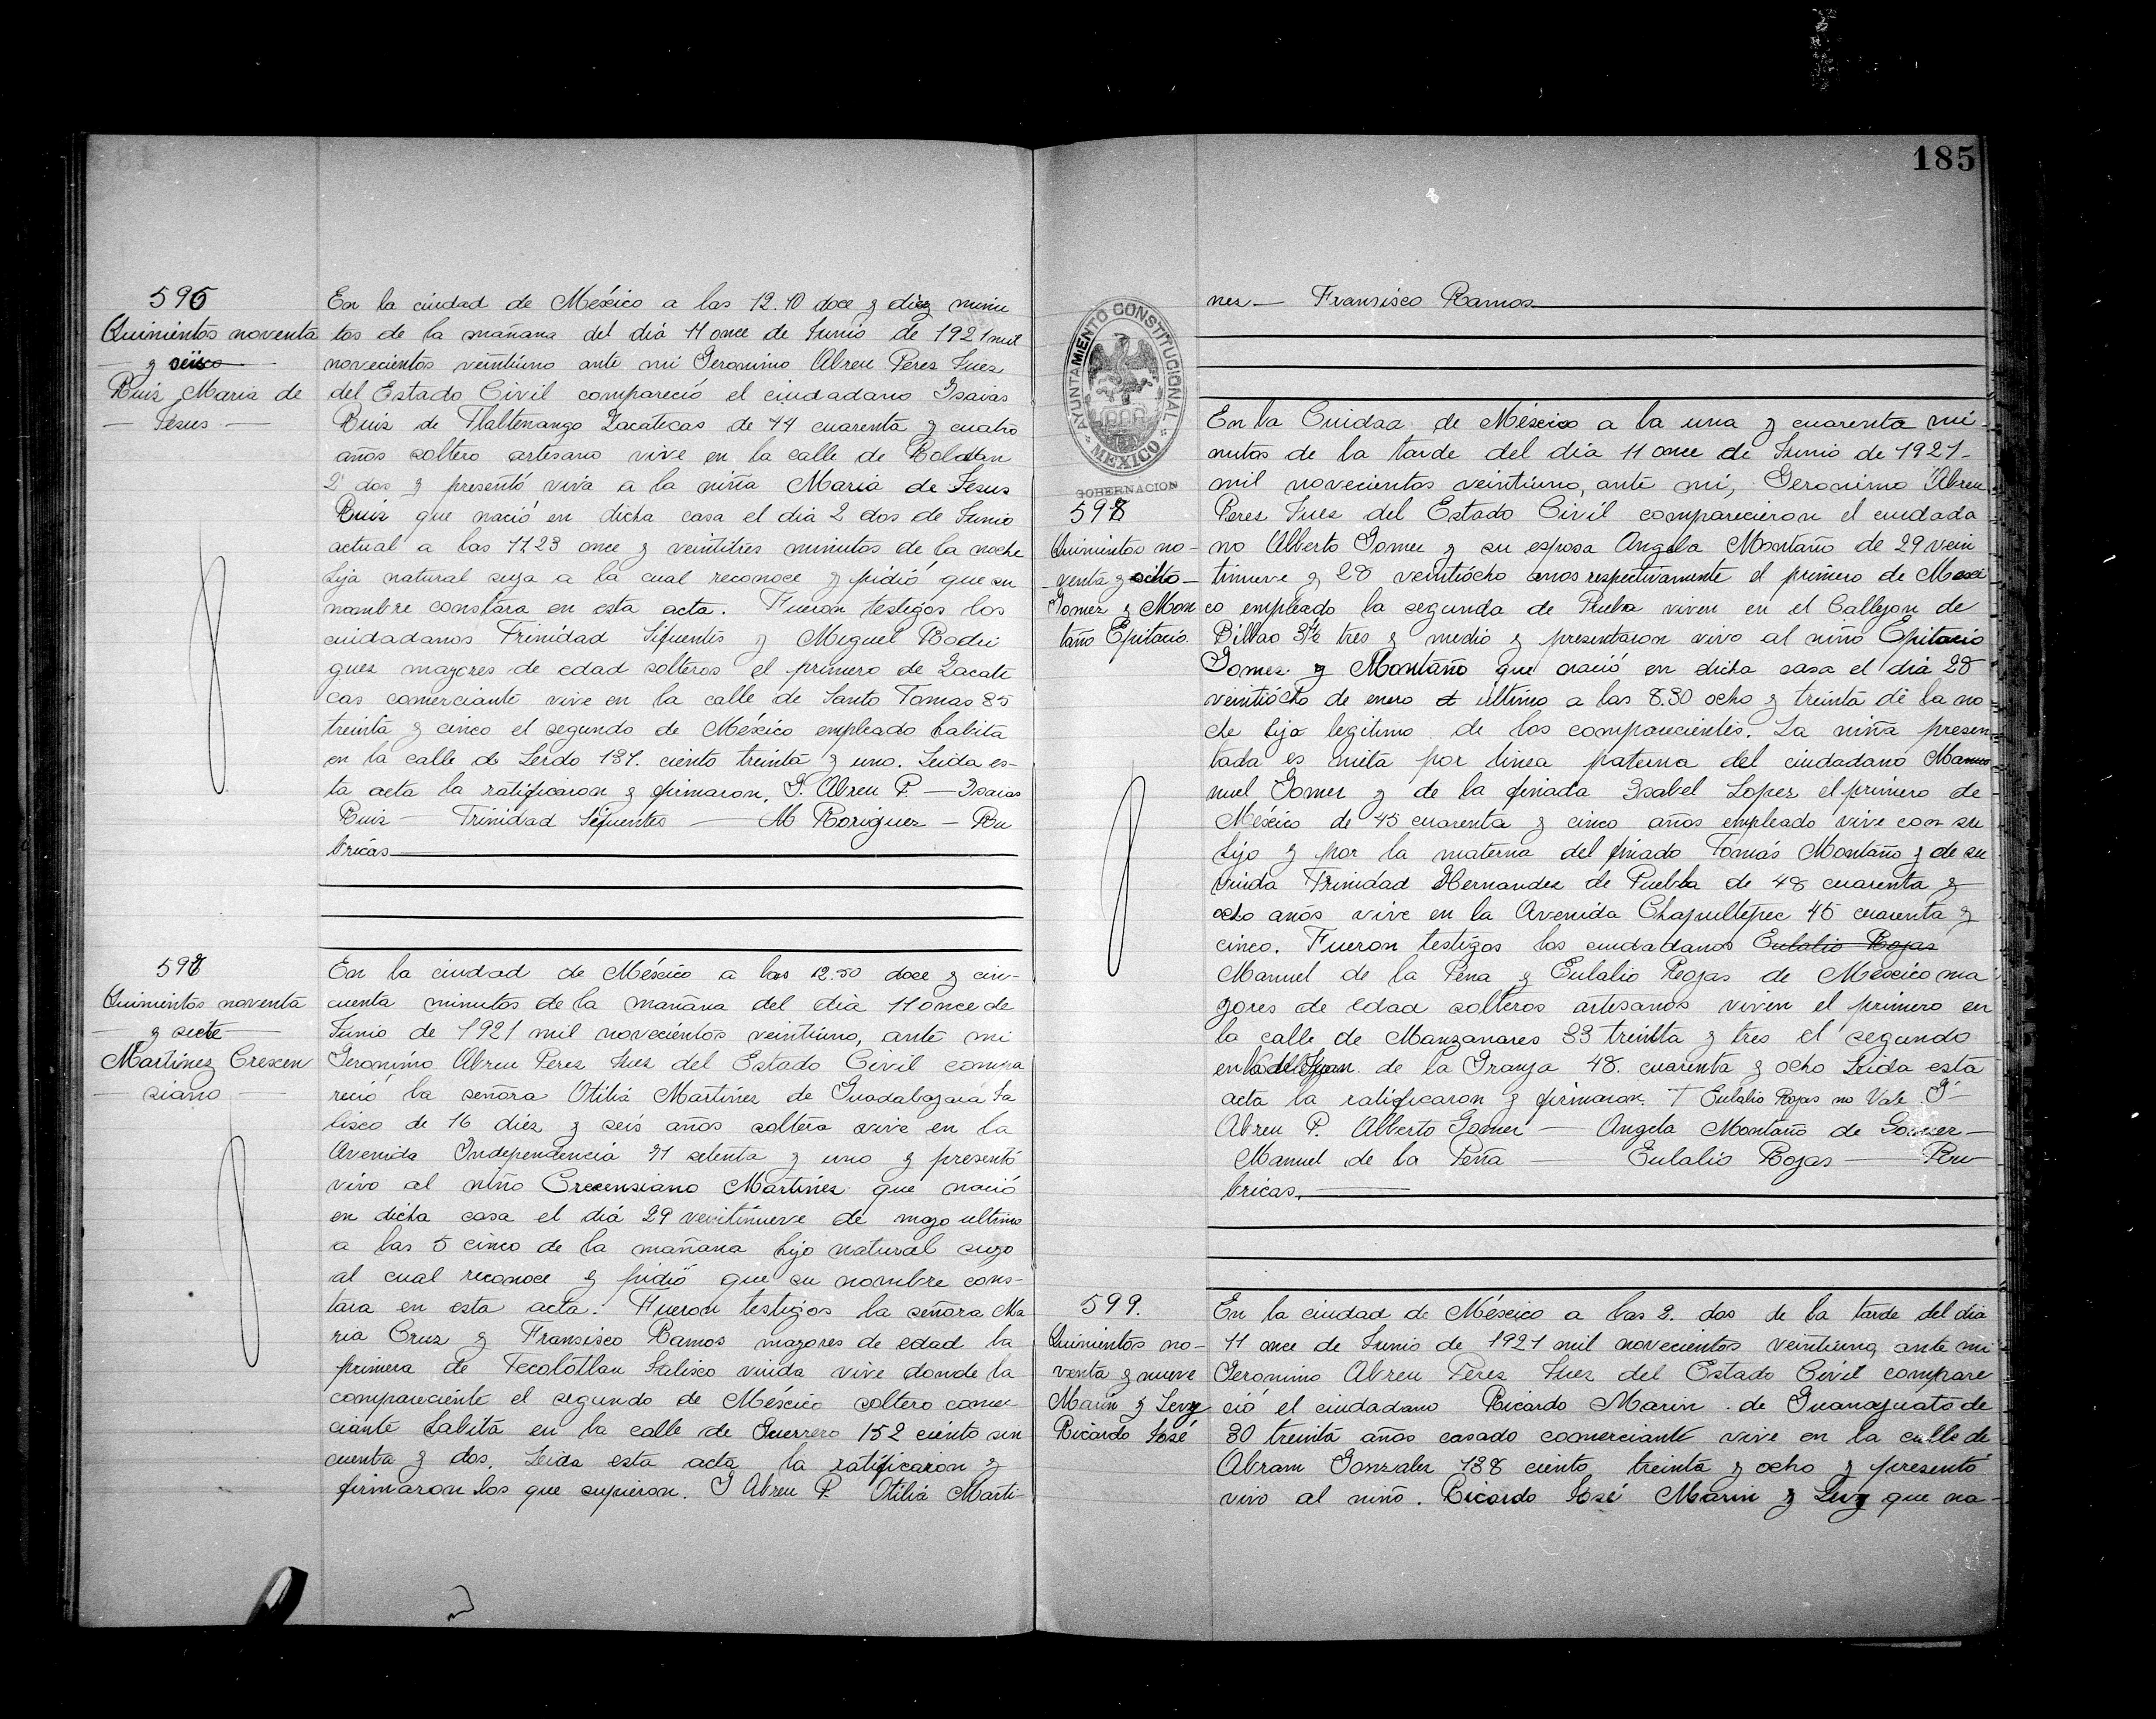 596
Quinientos noventa
y seis
Ruiz Maria de
Jesus
En la ciudad de México a las 12.10 doce y diez minu
tos de la mañana del dia 11 once de Junio de 1921 mil
novecientos veintiuno ante mi Geronimo Abreu Perez Juez
del Estado Civil compareció el ciudadano Isaias
Ruiz de Tlaltenango Zacatecas de 44 cuarenta y cuatro
años soltero artesano vive en la calle de Roldan
2 dos y presentó viva a la niña Maria de Jesus
Ruiz que nació en dicha casa el dia 2 dos de Junio
actual a las 11.23 once y veintitres minutos de la noche
hija natural suya a la cual reconoce y pidió que su
nombre constara en esta acta. Fueron testigos los
ciudadanos Trinidad Sifuentes y Miguel Rodri
guez mayores de edad solteros el primero de Zacate
cas comerciante vive en la calle de Santo Tomas 35
treinta y cinco el segundo de México empleado habita
en la calle de Lerdo 131. ciento treinta y uno. Leida es-
ta acta la ratificaron y firmaron. G. Abreu P. — Isaias
Ruiz — Trinidad Sifuentes — M Roriguez — Ru
bricas
597
Quinientos noventa
y siete
Martinez Crescen
siano
En la ciudad de México a las 12.50 doce y cin-
cuenta minutos de la mañana del dia 11 once de
Junio de 1921 mil novecientos veintiuno, ante mi
Geronimo Abreu Perez Juez del Estado Civil compa
reció la señora Otilia Martinez de Guadalajara Ja
lisco de 16 diez y seis años soltera vive en la
Avenida Independencia 71 setenta y uno y presentó
vivo al niño Crecensiano Martinez que nació
en dicha casa el dia 29 veintinueve de mayo ultimo
a las 5 cinco de la mañana hijo natural suyo
al cual reconoce y pidió que su nombre cons-
tara en esta acta. Fueron testigos la señora Ma
ria Cruz y Fransisco Ramos mayores de edad la
primera de Tecolotlan Jalisco viuda vive donde la
compareciente el segundo de México soltero comer
ciante habita en la calle de Guerrero 152 ciento sin
cuenta y dos. Leida esta acta la ratificaron y
firmaron los que supieron. G Abreu P. Otilia Marti-
185
nez — Fransisco Ramos
AYUNTAMIENTO CONSTITUCIONAL
MEXICO
GOBERNACION
598
Quinientos no-
venta y ocho
Gomez y Mon
taño Epitacio.
En la Ciudad de México a la una y cuarenta mi-
nutos de la tarde del dia 11 once de Junio de 1921-
mil novecientos veintiuno, ante mi, Geronimo Abreu
Perez Juez del Estado Civil comparecieron el ciudada
no Alberto Gomez y su esposa Angela Montaño de 29 vein
tinueve y 28 veintiocho años respectivamente el primero de Mexi
co empleado la segunda de Puebla viven en el Callejon de
Bilbao 3½ tres y medio y presentaron vivo al niño Epitacio
Gomez y Montaño que nació en dicha casa el dia 28
veintiocho de enero ultimo a las 8.30 ocho y treinta de la no
che hijo legitimo de los comparecientes. La niña presen
tada es nieta por linea paterna del ciudadano Ma
nuel Gomez y de la finada Isabel Lopez el primero de
México de 45 cuarenta y cinco años empleado vive con su
hijo y por la materna del finado Tomás Montaño y de su
viuda Trinidad Hernandez de Puebla de 48 cuarenta y
ocho años vive en la Avenida Chapultepec 45 cuarenta y
cinco. Fueron testigos los ciudadanos Eulalio Rojas
Manuel de la Peña y Eulalio Rojas de México ma
yores de edad solteros artesanos viven el primero en
la calle de Manzanares 33 treinta y tres el segundo
en Juan de la Granja 48. cuarenta y ocho Leida esta
acta la ratificaron y firmaron. T Eulalio Rojas no Vale G
Abreu P. Alberto Gomez — Angela Montaño de Gomez —
Manuel de la Peña — Eulalio Rojas — Ru
bricas.
599.
Quinientos no-
venta y nueve
Marin y Levy
Ricardo José
En la ciudad de México a las 2. dos de la tarde del dia
11 once de Junio de 1921 mil novecientos veintiuno, ante mi
Geronimo Abreu Perez Juez del Estado Civil compare
ció el ciudadano Ricardo Marin de Guanajuato de
30 treinta años casado comerciante vive en la calle de
Abram Gonzalez 138 ciento treinta y ocho y presentó
vivo al niño. Ricardo José Marin y Levy que na-